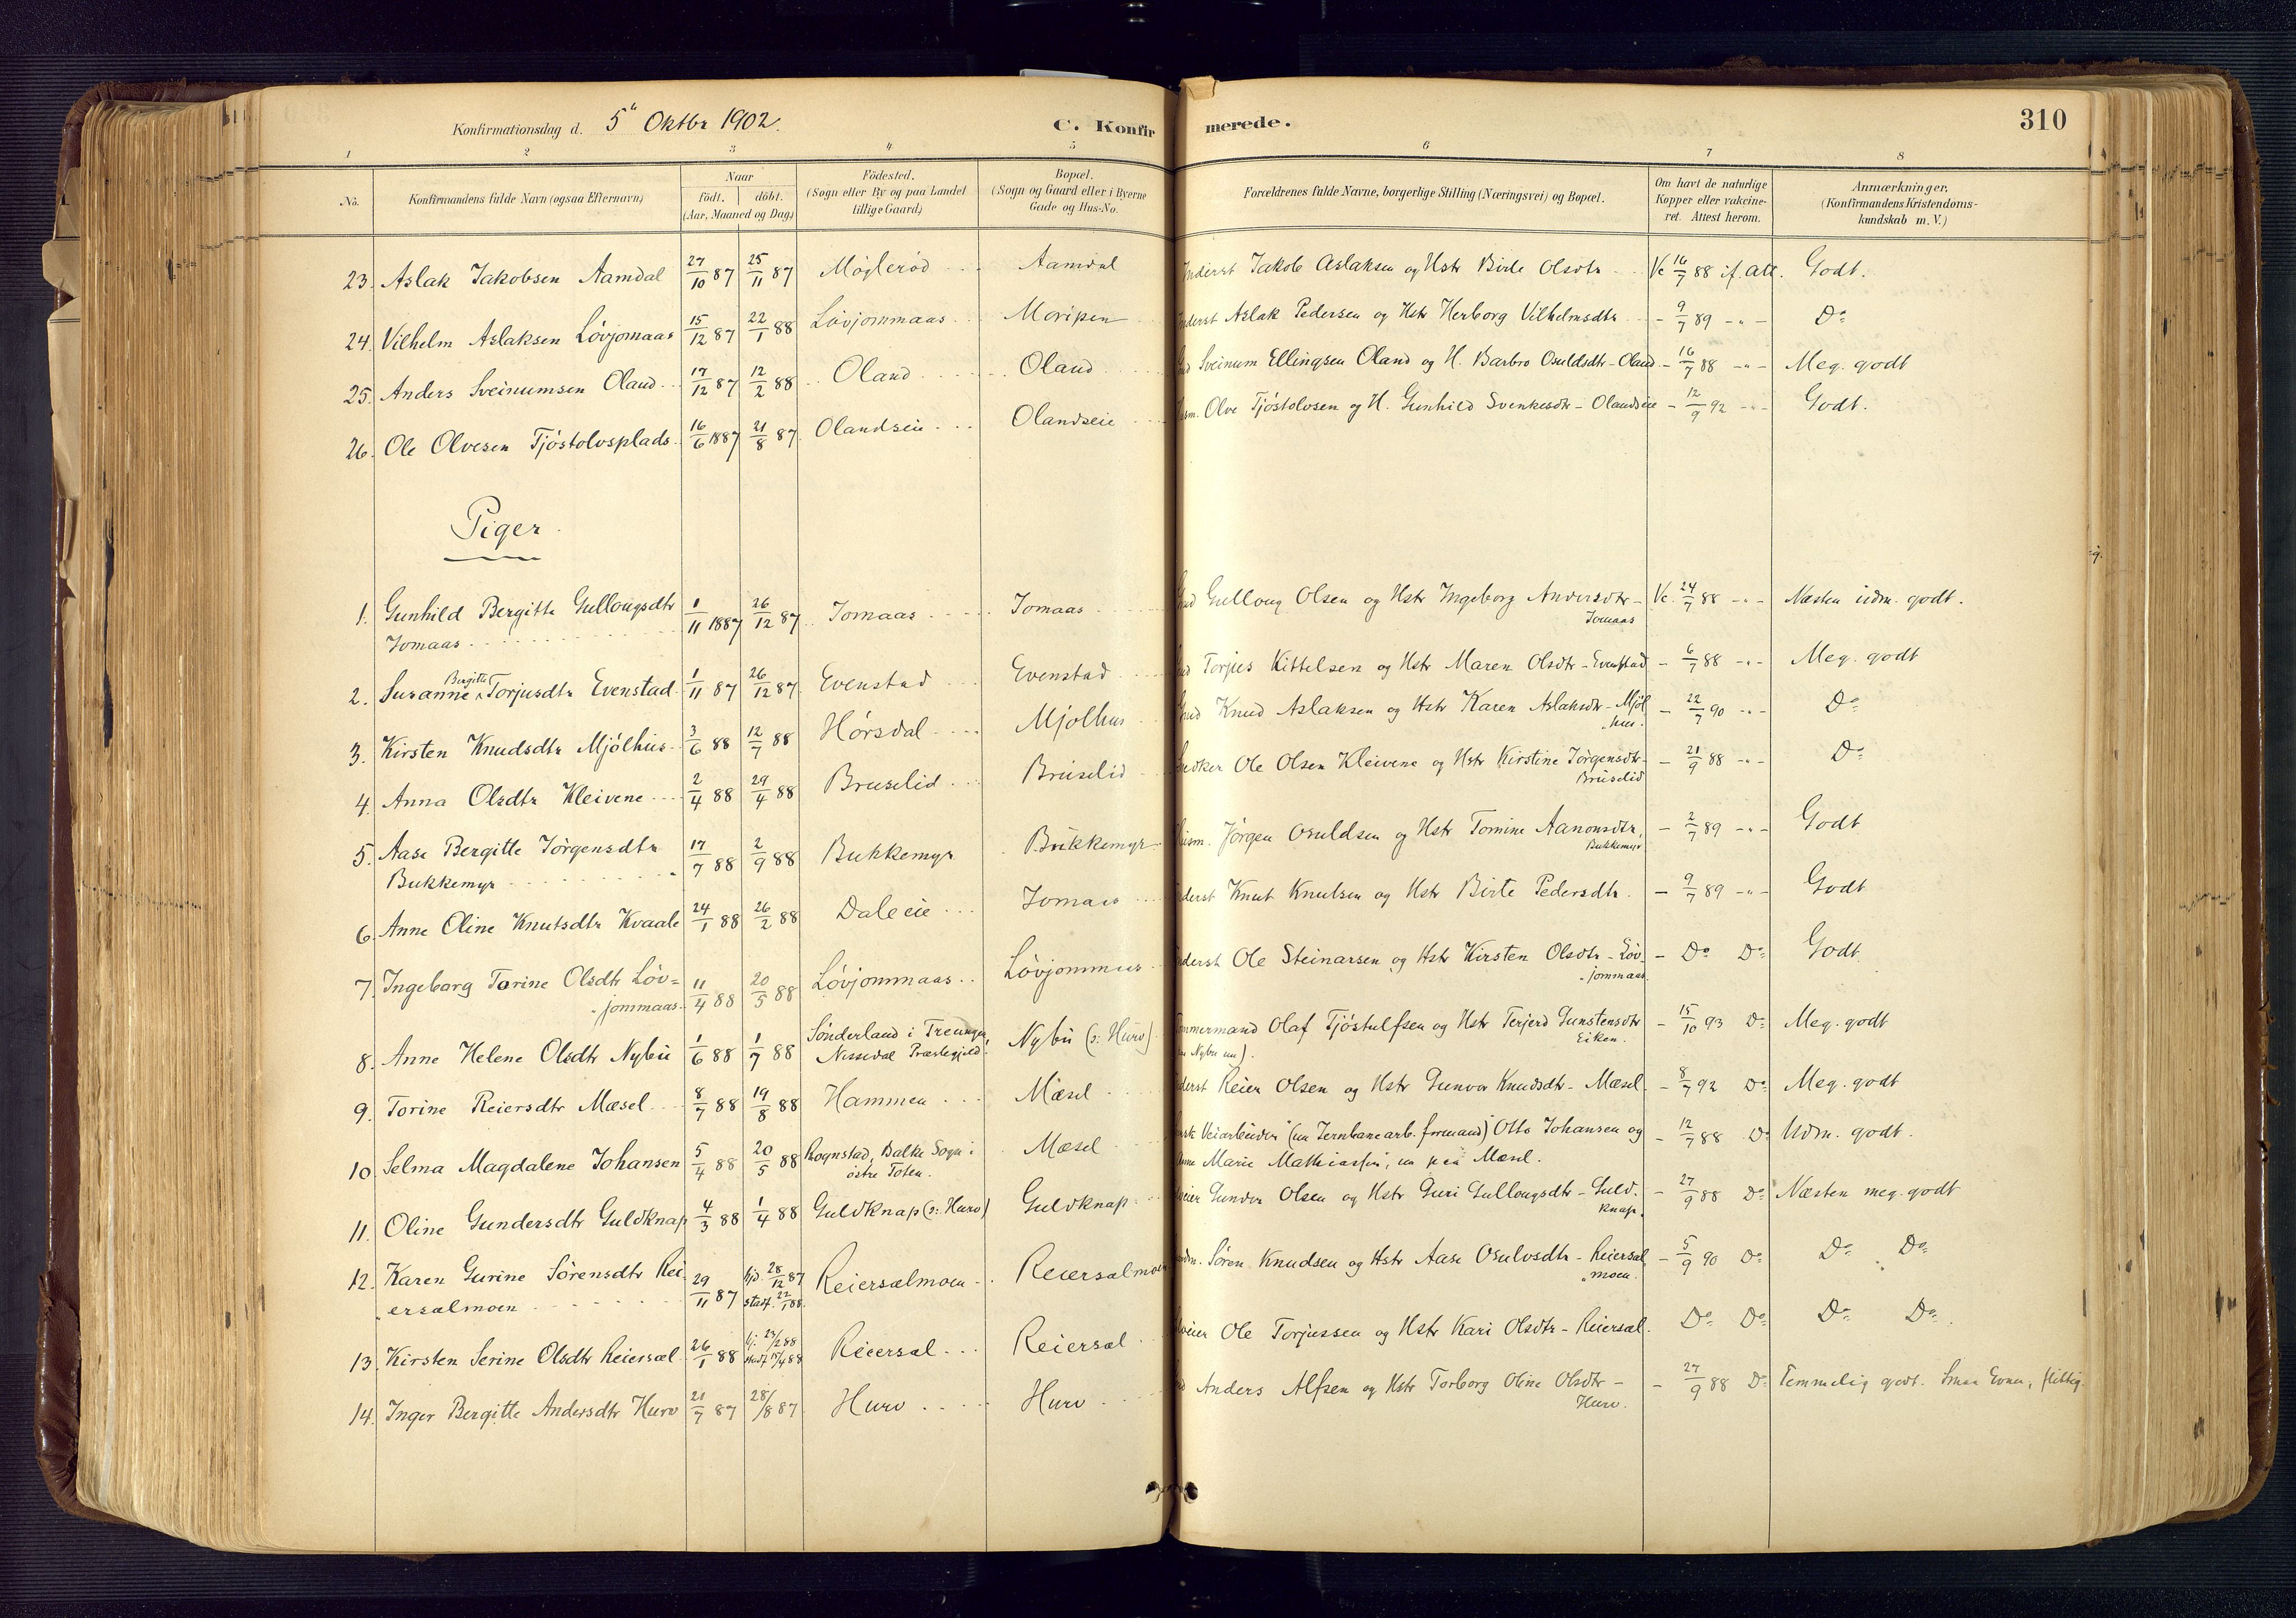 Konfirmationsdag d. 5" Oktbr 1902. C. Konfir merede. 310
1 2 3 4 5 6 7 8
No. Konfirmandens fulde Navn (ogsaa Efternavn) Naar födt. döbt. (Aar, Maaned og Dag) Födested. (Sogn eller By og paa Landet tillige Gaard) Bopæl. (Sogn og Gaard eller i Byerne Gade og Hus-No. Forældrenes fulde Navne, borgerlige Stilling (Næringsvei) og Bopæl. Om havt de naturlige Kopper eller vakcineret. Attest herom. Anmærkninger. (Konfirmandens Kristendomskundskab m. V.)
23. Aslak Jakobsen Aamdal 27/10 87 25/11 87 Møglerød Aamdal Inderst Jakob Aslaksen og Hstr Birte Olsdtr Vc 16/7 88 if. att. Godt.
24. Vilhelm Aslaksen Løvjomaas 15/12 87 22/1 88 Løvjommaas Moripen Inderst Aslak Pedersen og Hstr Herborg Vilhelmsdtr - 9/7 89 -"- Do
25. Anders Sveinumsen Oland 17/12 87 12/2 88 Oland Oland Sveinum Ellingsen Oland og H. Barbro Osuldsdtr - Oland - 16/7 88 -"- Meg. godt
26. Ole Olvesen Tjøstolvsplads 16/6 1887 21/8 87 Olandseie Olandseie Husm. Olve Tjøstolvsen og H. Gunhild Svenkesdtr - Olandseie - 12/9 92 -"- Godt.
Piger
1. Gunhild Bergitte Gullougsdtr 1/11 1887 26/12 87 Jomaas Jomaas Gulloug Olsen og Hstr Ingeborg Andersdtr - Vc. 24/7 88 -"- Næsten udm. godt.
Jomaas Jomaas
2. Susanne Bergitte Torjusdtr Evenstad 1/11 87 26/12 87 Evenstad Evenstad Torjus Kittelsen og Hstr Maren Olsdtr - Evenstad - 6/7 88 -"- Meg. godt
3. Kirsten Knudsdtr Mjölhus 3/6 88 12/7 88 Hørsdal Mjølhus Knud Aslaksen og Hstr Karen Aslaksdtr - Mjöl - 22/7 90 -"- Do
hus.
4. Anna Olsdtr Kleivene 2/4 88 29/4 88 Bruselid Bruselid Snedker Ole Olsen Kleivene og Hstr Kirstine Jörgensdtr - - 21/9 88 -"- Do
Bruselid
5. Aase Bergitte Jörgensdtr 17/7 88 2/9 88 Bukkemyr Bukkemyr Husm. Jörgen Osuldsen og Hstr Tomine Aanonsdtr, - 2/7 89 -"- Godt
Bukkemyr Bukkemyr
6. Anne Oline Knutsdtr Kvaale 24/1 88 26/2 88 Daleeie Jomaas Inderst Knut Knutsen og Hstr Birte Pedersdtr. - 9/7 89 -"- Godt
7. Ingeborg Torine Olsdtr Löv= 11/4 88 20/5 88 Lövjommaas Lövjommaas Inderst Ole Steinarsen og Hstr Kirsten Olsdtr - Löv - Do Do Godt
jommaas jommaas
8. Anne Helene Olsdtr Nybu 1/6 88 1/7 88 Sönderland i Treungen Nybu (ɔ: Hurv) Tømmermand Olaf Tjöstulfsen og Hstr Terjerd Gunstensdtr - 15/10 93 Do Meg. godt
Nissedal Præstegjeld. Nybu nu). Eiken.
9. Torine Reiersdtr Mæsel 8/7 88 19/8 88 Hammen Mæsel Inderst Reier Olsen og Hstr Gunvor Knudsdtr - Mæsel - 8/7 92 Do Meg. godt
10. Selma Magdalene Johansen 5/4 88 20/5 88 Rognstad, Balke Sogn i Mæsel Veiarbeider (nu Jernbanearb. formand) Otto Johansen og - 12/7 88 Do Udm. godt.
østre Toten. Anne Marie Mathiassen, nu paa Mæsel.
11. Oline Gundersdtr Guldknap 4/3 88 1/4 88 Guldknap (ɔ: Hurv) Guldknap Gunder Olsen og Hstr Guri Gullougsdtr - Guld. - 27/9 88 Do Næsten meg. godt
knap.
12. Karen Gurine Sörensdtr Rei 29/11 87 hjd. 28/12 87 Reiersælmoen Reiersælmoen Sören Knudsen og Hstr Aase Osulvsdtr - Reiersæl - 5/9 90 Do Do Do
ersælmoen stadf. 22/1 88. moen.
13. Kirsten Serine Olsdtr Reiersæl 26/1 88 hj. 23/2 88 Reiersæl Reiersæl Ole Torjussen og Hstr Kari Olsdtr - Reiersæl. Do Do Do Do
stadf 15/4 88
14. Inger Bergitte Andersdtr Hurv 21/7 87 28/8 87 Hurv Hurv Anders Alfsen og Hstr Torborg Oline Olsdtr - - 27/9 88 Do Temmelig godt. Smaa Evner, flittig.
Hurv.